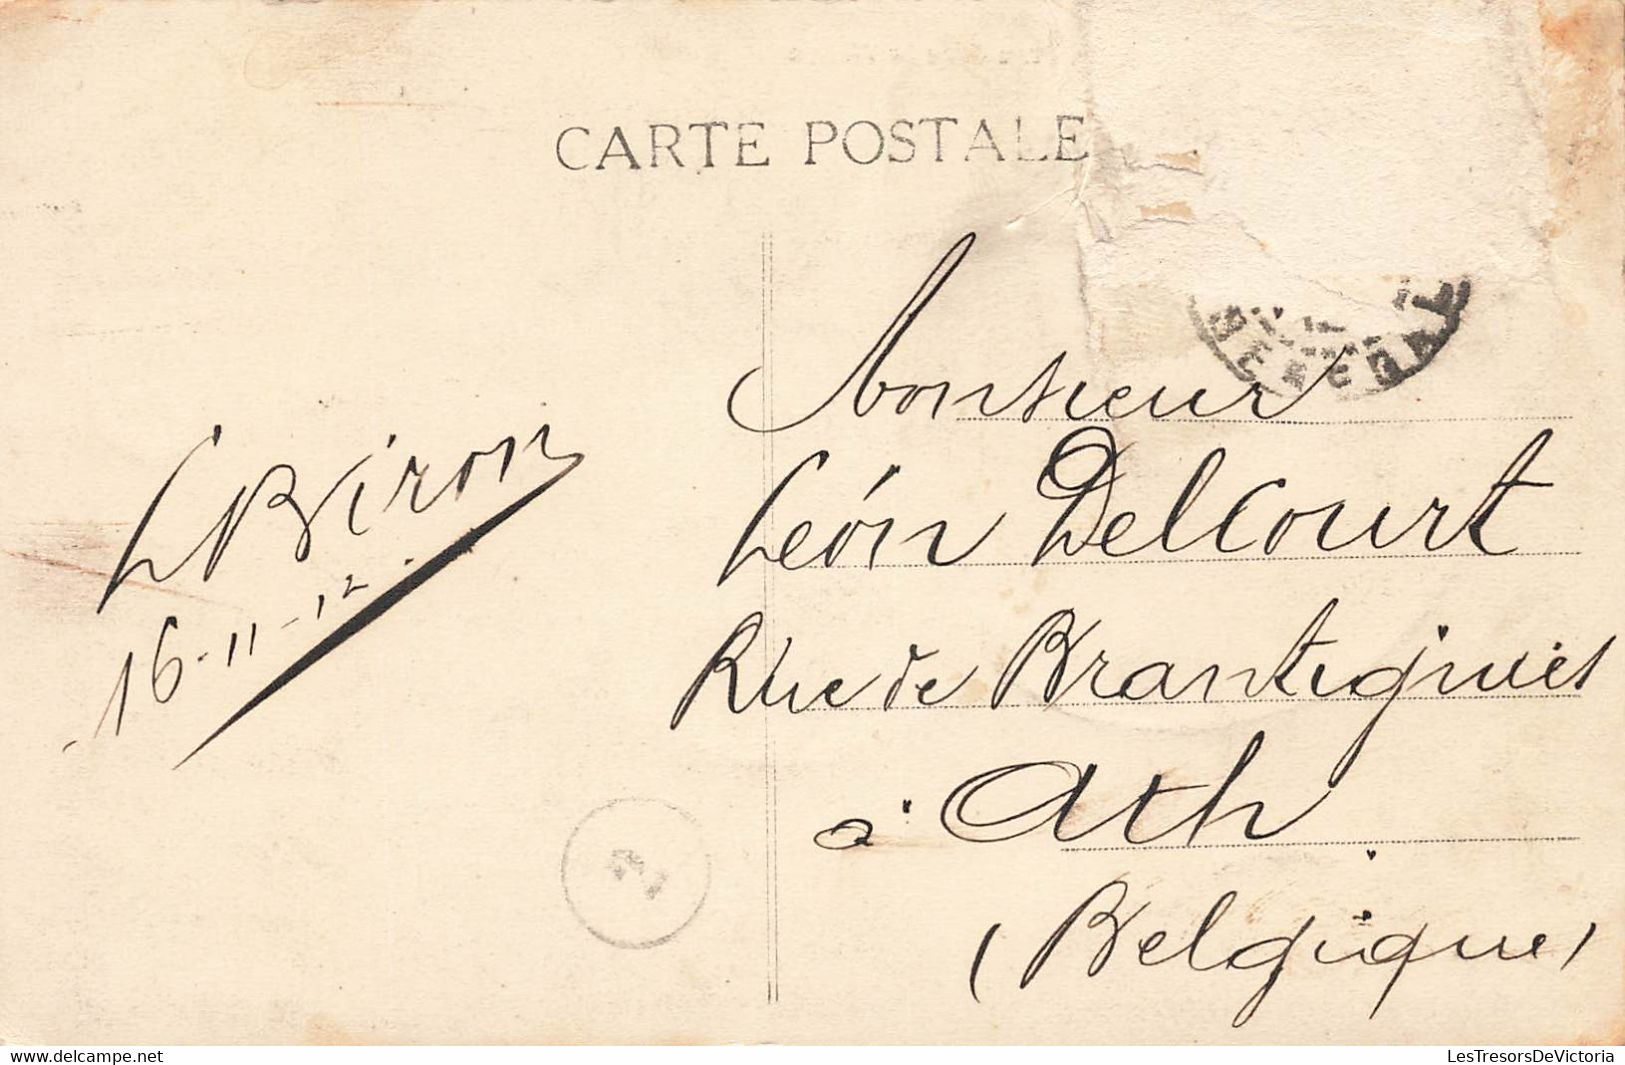 CARTE POSTALE
SENEGAL
L Biron
16-11-12
Monsieur
Léon Delcourt
Rue de Brantignies
à Ath
(Belgique)
delcampe.net
LesTresorsDeVictoria